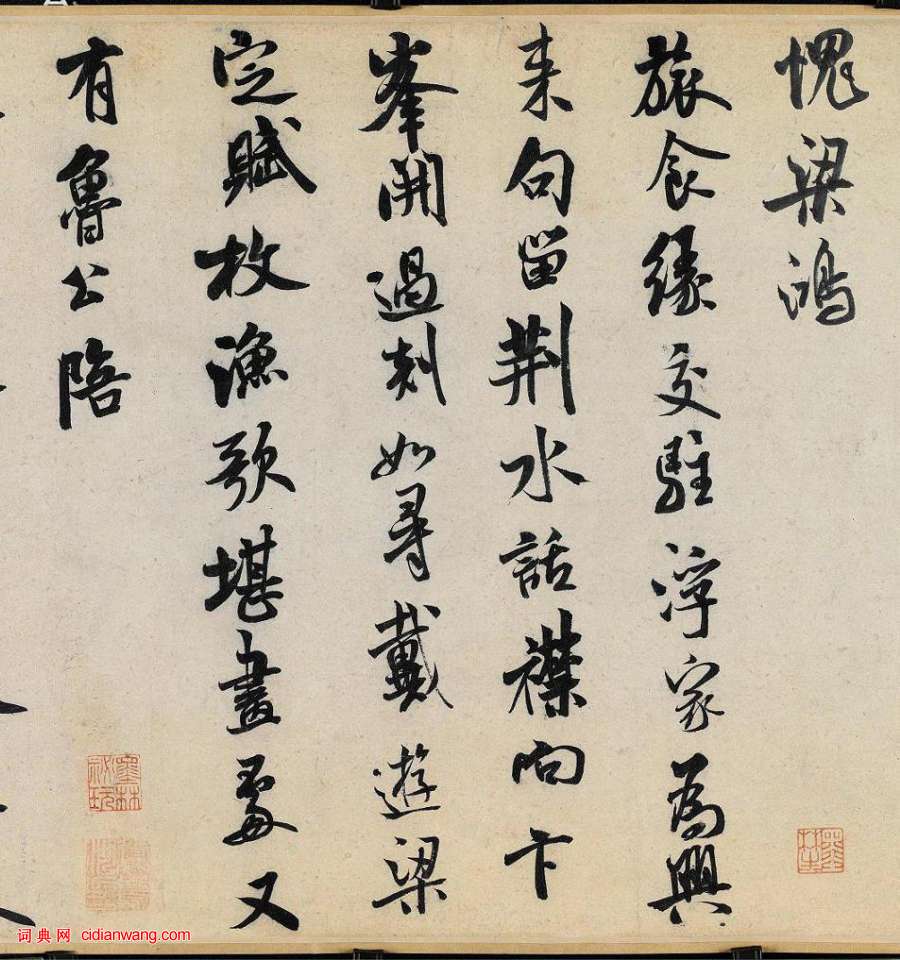 愧梁鴻
旅食緣交駐浮家為興
来句留荊水話襟向卞
峯開過剡如尋戴遊梁
定賦枚漁歌堪畫處又
有魯公陪
墨林秘玩
词典网 cidianwang.com